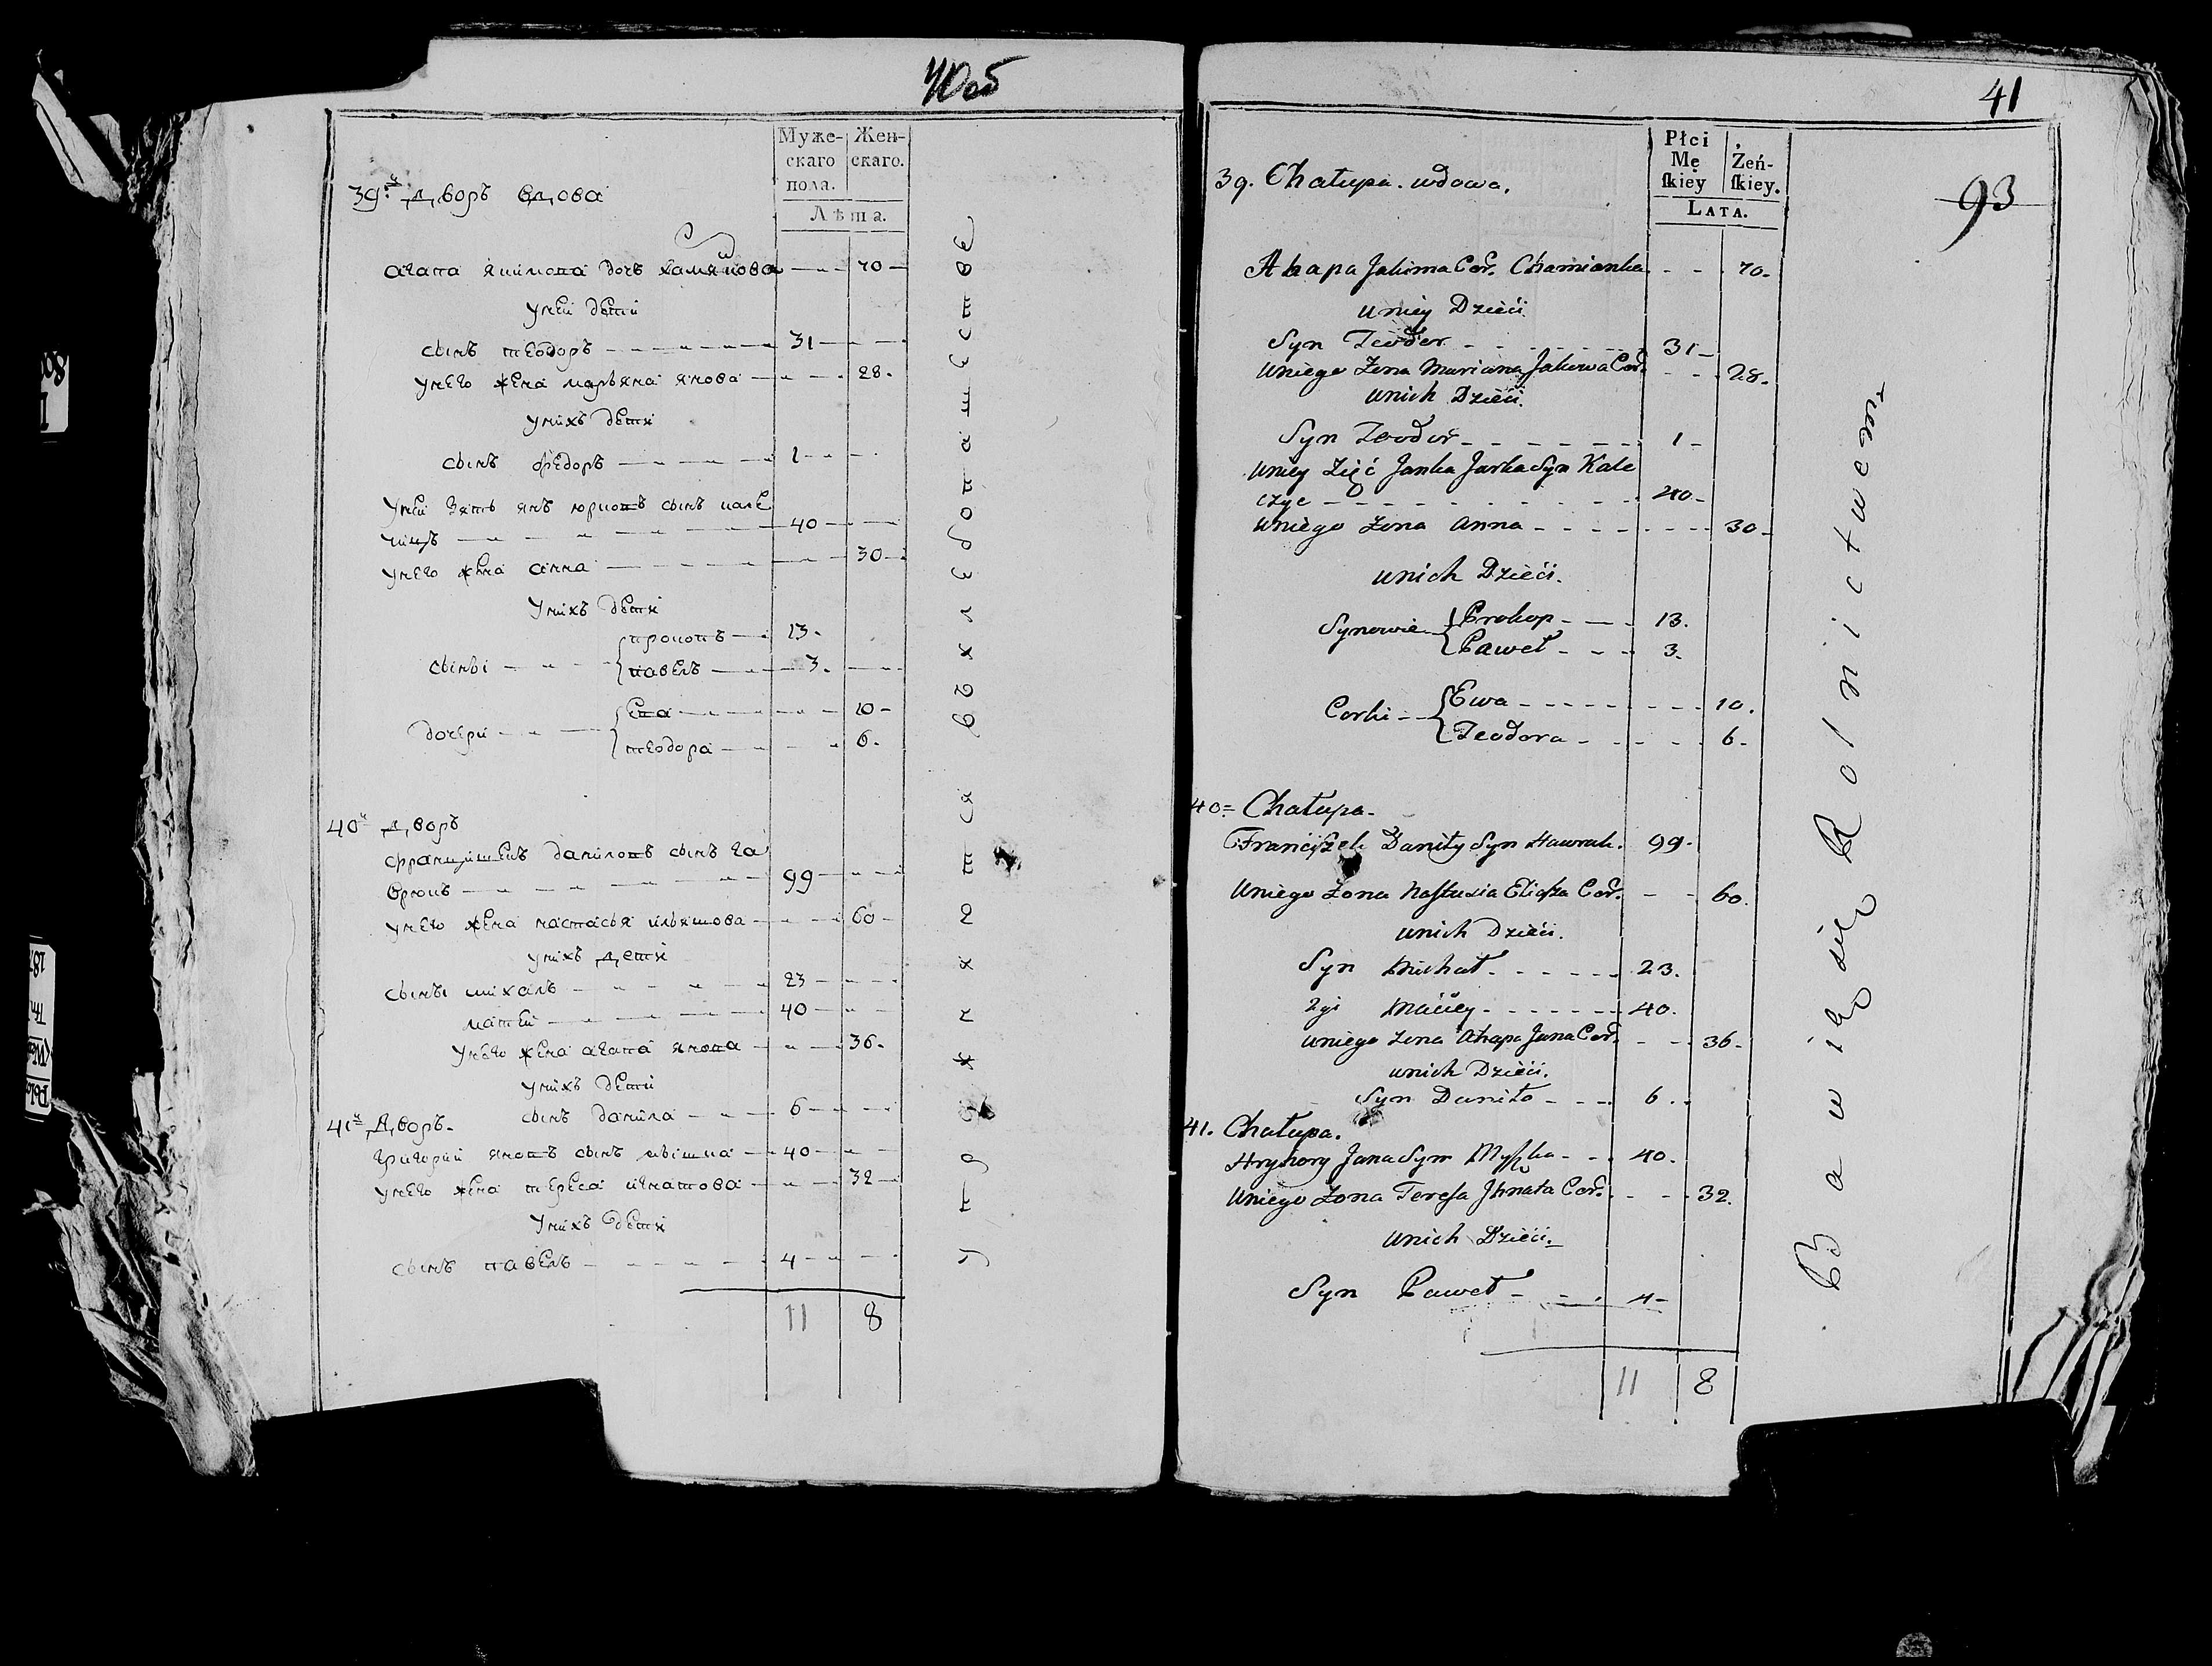 40об
Муже-
скаго
пола.
Жен-
скаго.
Лѣта.
39.й дворъ вдова
агапа якимова дочь хамянкова 70
у ней дети
сынъ теодоръ 31
у него жена марьяна якова 28.
у нихъ дети
сынъ федоръ 1
у ней зять янъ юрковъ сынъ кале
чицъ 40
у него жена анна 30
у нихъ дети
сыны
прокопъ 13.
павелъ 3.
дочери
Ева 10
теодора 6.
40й дворъ
францишекъ даниловъ сынъ га
врюкъ 99
у него жена настасья ильяшова 60
у нихъ дети
сыны михалъ 23
матей 40
у него жена агапа янова 36.
у нихъ дети
сынъ данила 6
41й дворъ.
григорий яновъ сынъ мышка 40
у него жена тереса игнатова 32
у нихъ дети
сынъ павелъ 4
11 8
41
93
Płci
Mę
ſkiey
Żeń-
ſkiey.
LATA.
39. Chałupa. wdowa.
Ahapa Jakima Cor. Chamianka 70.
u niey Dzieci
Syn Teodor 31
u niego Żona Mariana Jakowa Cor. 28.
u nich Dzieci.
Syn Teodor 1
u niey Zięć Janka Jurka Syn Kale
czyc 40.
u niego Żona Anna 30
u nich Dzieci.
Synowie
Prokop 13.
Paweł 3.
Corki
Ewa 10.
Teodora 6.
40. Chałupa.
Franciſzek Daniły Syn Hawruk. 99.
u niego Żona Naſtusia Eliaſza Cor. 60.
u nich Dzieci.
Syn Michał 23.
2gi Maciey 40.
u niego Żona Ahapa Jana Cor. 36.
u nich Dzieci.
Syn Daniło 6.
41. Chałupa.
Hryhory Jana Syn Myſzka 40.
u niego Żona Tereſa Ihnata Cor. 32.
u nich Dzieci.
Syn Paweł 4
11 8
Bawią się Rolnictwem